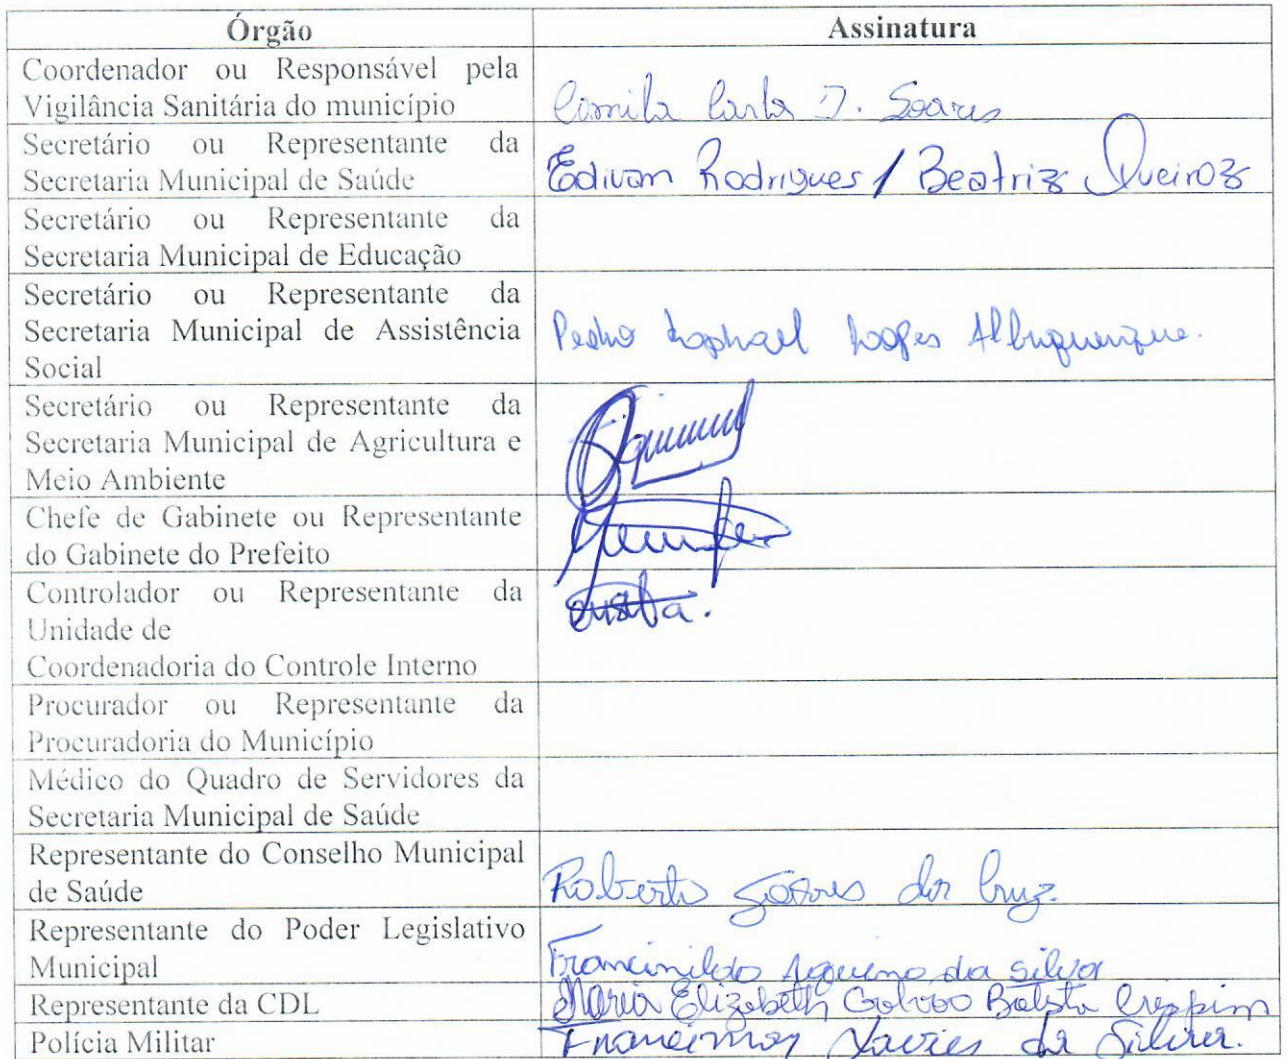 Órgão Assinatura
Coordenador ou Responsável pela
Vigilância Sanitária do município
Camila Carla J. Soares
Secretário ou Representante da
Secretaria Municipal de Saúde
Edivan Rodrigues / Beatriz Queiroz
Secretário ou Representante da
Secretaria Municipal de Educação
Secretário ou Representante da
Secretaria Municipal de Assistência
Social
Pedro Raphael Lopes Albuquerque.
Secretário ou Representante da
Secretaria Municipal de Agricultura e
Meio Ambiente
Chefe de Gabinete ou Representante
do Gabinete do Prefeito
Controlador ou Representante da
Unidade de
Coordenadoria do Controle Interno
Procurador ou Representante da
Procuradoria do Município
Médico do Quadro de Servidores da
Secretaria Municipal de Saúde
Representante do Conselho Municipal
de Saúde
Roberto da Cruz.
Representante do Poder Legislativo
Municipal
Francinildo da Silva
Representante da CDL
Maria Elizabeth Galvão Batista Creppim
Polícia Militar
Xavier da